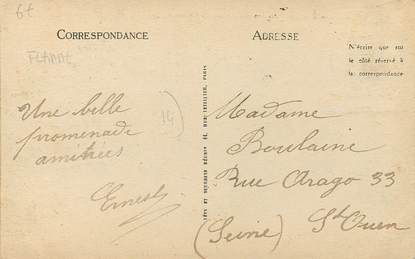 6f
CORRESPONDANCE
Une belle
promenade
amitiées
Ernest
14
ADRESSE
N'écrire que sur
le côté réservé à
la correspondance
Madame
Boulaine
Rue Arago 33
St Ouen
(Seine)